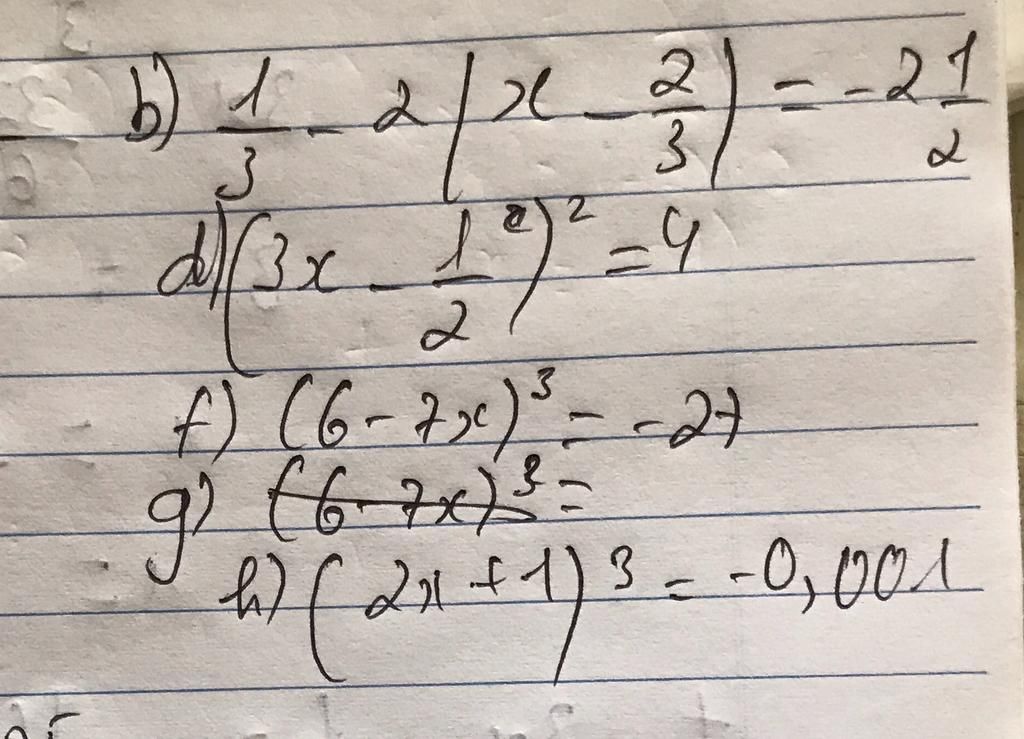 b) 1/3 - 2 | x - 2/3 | = -2 1/2
d) (3x - 1/2)² = 4
f) (6 - 7x)³ = -27
g) (6 - 7x)³ =
h) (2x + 1)³ = -0,001